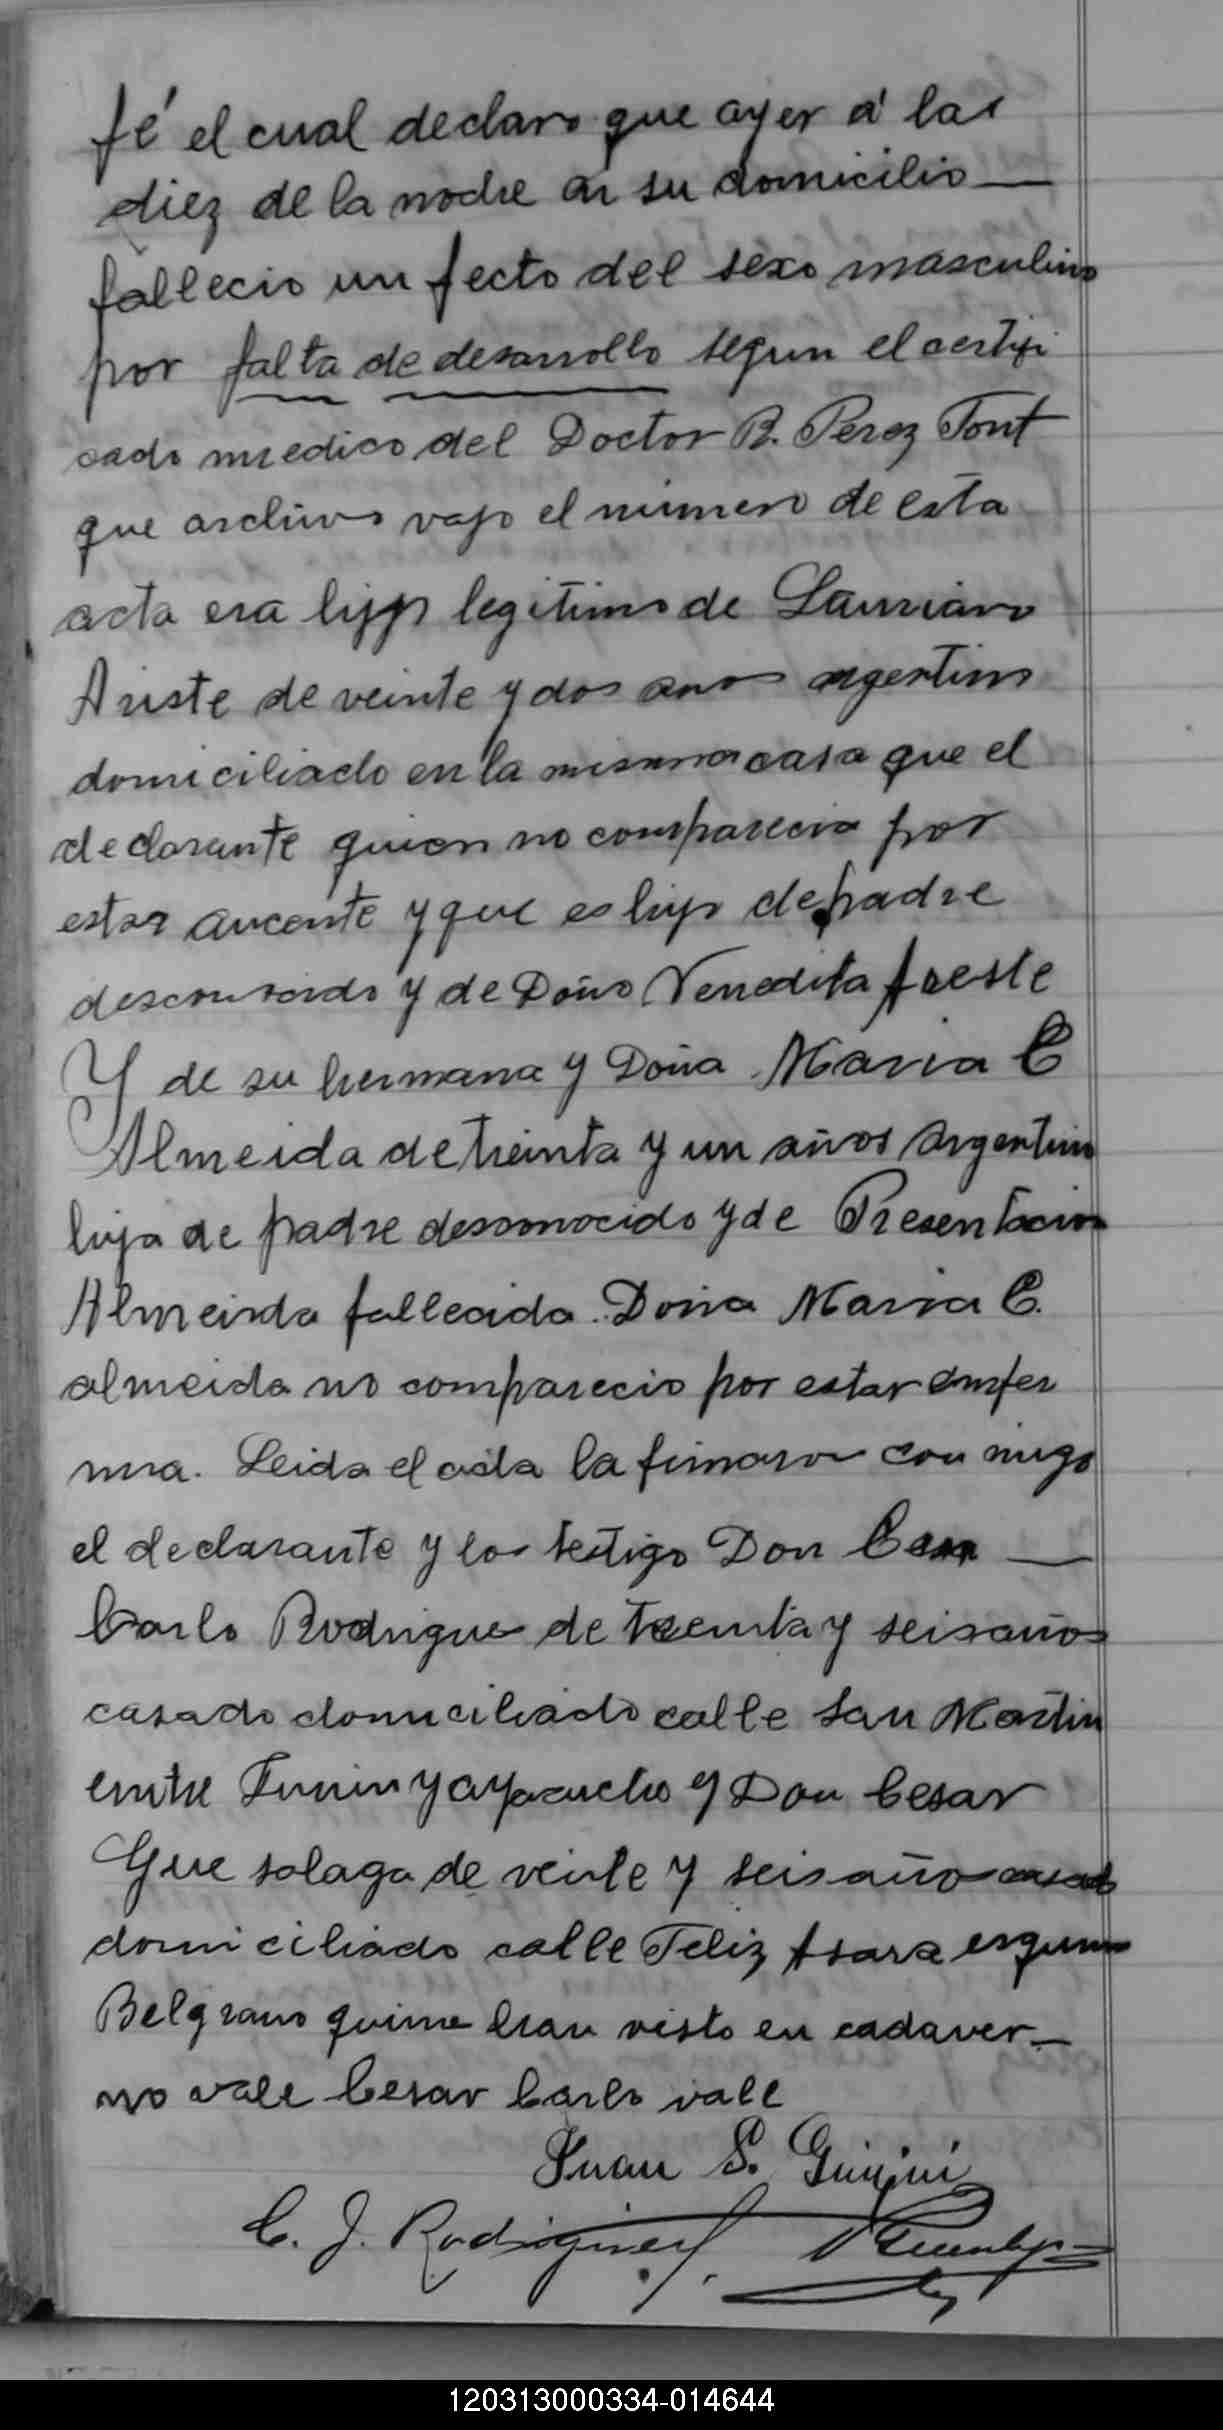 fé el cual declaro que ayer á las
diez de la noche en su domicilio
fallecio un fecto del sexo masculino
por falta de desarrollo segun el certifi
cado medico del Doctor B. Perez Font
que archivo vajo el número de esta
acta era hijo legitimo de Lauriano
Ariste de veinte y dos anos argentino
domiciliado en la misma casa que el
declarante quien no comparecio por
estar aucente y que es hijo de padre
desconocido y de Doña Venedita Areste
Y de su hermana y Doña Maria C
Almeida de treinta y un años argentin
hija de padre desconocido y de Presentacion
Almeida fallecida. Doña Maria C.
almeida no comparecio por estar enfer
ma. Leida el acta la firmaron con migo
el declarante y los testigo Don Cesar
Carlo Rodrigue de treinta y seis años
casado domiciliado calle San Martin
entre Junin y ayacucho y Don Cesar
Que salaga de veinte y seis años casado
domiciliado calle Feliz Asara esquina
Belgrano quine han visto en cadaver
no vale Cesar Carlo vale
Juan S. Guiñi
C. J. Rodriguez
120313000334-014644